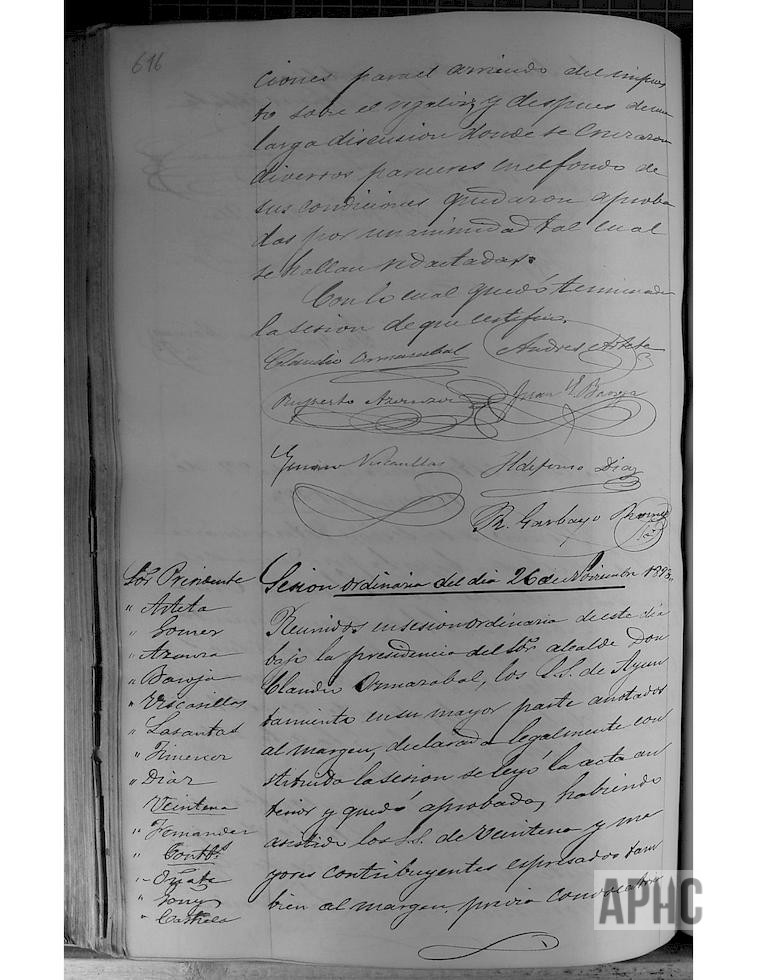 616
ciones para el arriendo del impues
to sobre el regaliz, y despues de una
larga discusion donde se cruzaron
diversos pareceres en el fondo de
sus condiciones quedaron aproba
das por unanimidad tal cual
se hallan redactadas.
Con lo cual quedó terminada
la sesion de que certifico.
Claudio Ormazabal Andres Arteta
Ruperto Azanza Juan Baroja
Genaro Viscasillas Ildefonso Diaz
R. Garbayo
Sesion ordinaria del dia 26 de Noviembre 189
Sor Presidente
" Arteta
" Gomez
" Azanza
" Baroja
" Viscasillas
" Lasantas
" Jimenez
" Diaz
Veintena
" Fernandez
" Contbs
" Oñate
" Jorry
" Castilla
Reunidos en sesion ordinaria de este dia
bajo la presidencia del Sor alcalde Don
Claudio Ormazabal, los S.S. de Ayun
tamiento en su mayor parte anotados
al margen, declarada legalmente con
stituida la sesion se leyó la acta an
terior y quedó aprobada, habiendo
asistido los S.S. de Veintena y ma
yores contribuyentes espresados tam
bien al margen, previa convocatoria
APHC